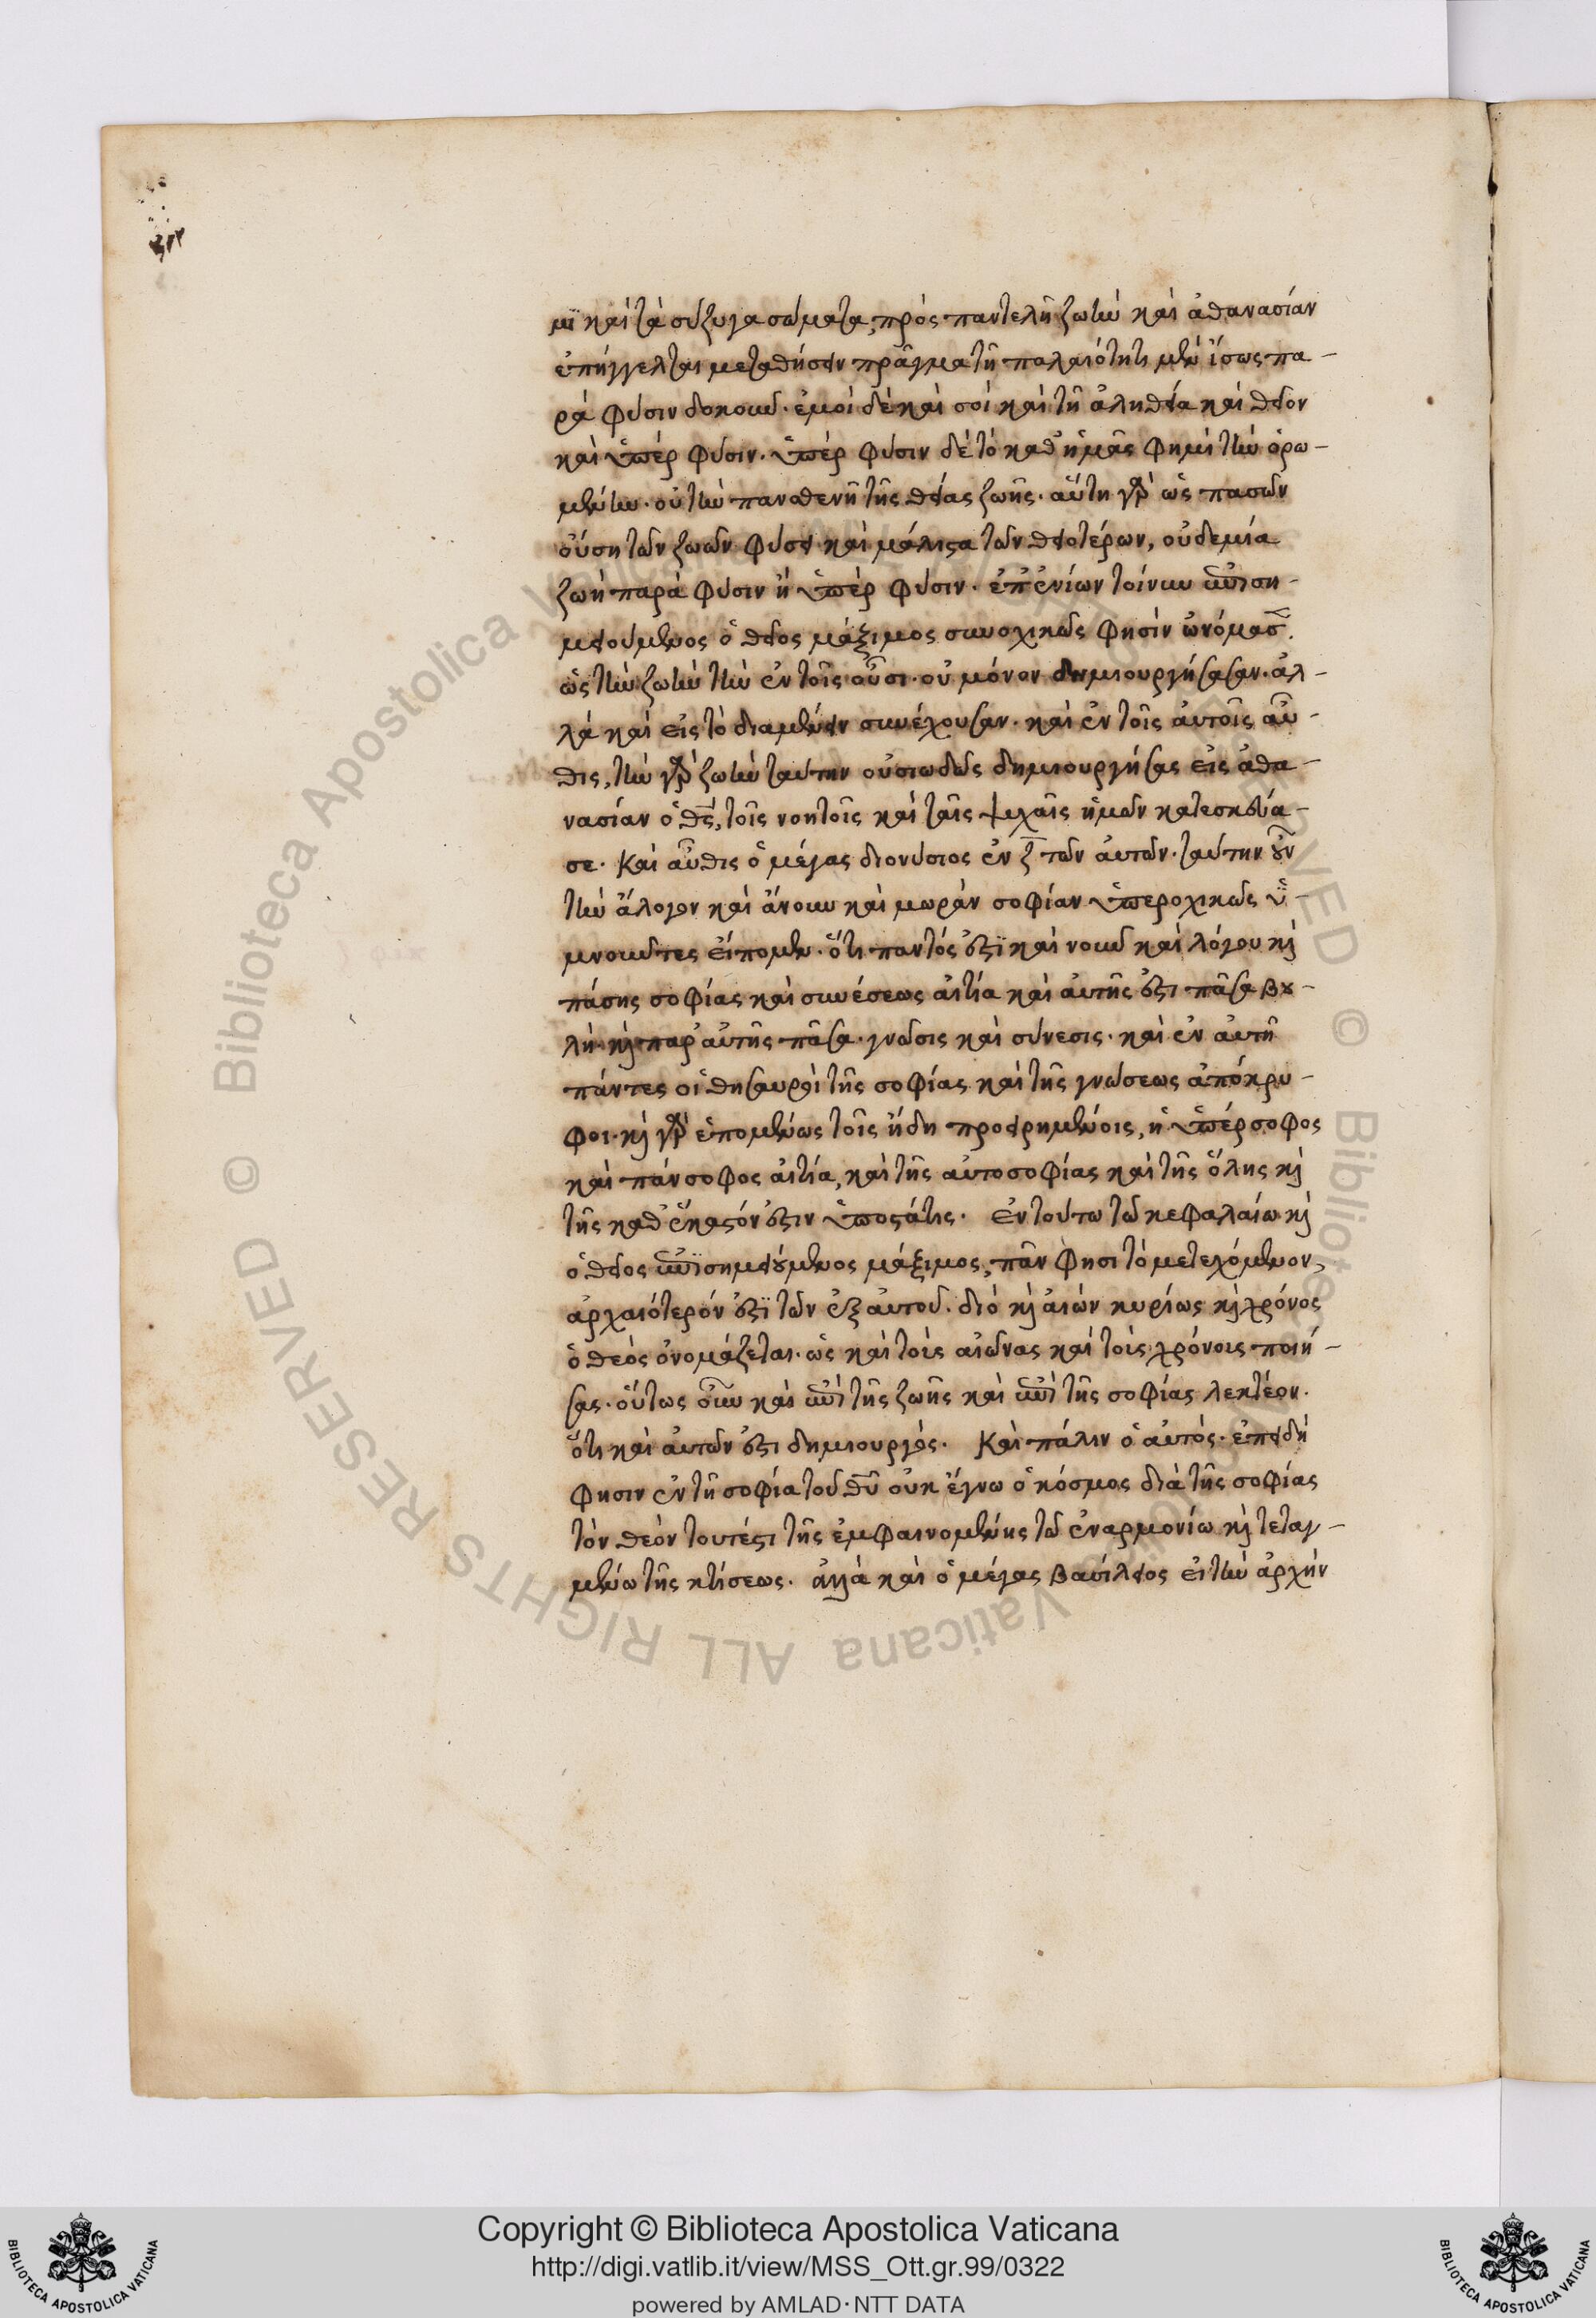 μϊ καὶ τὰ σύζυγα σώματα, πρὸς παντελῆ ζωὴν καὶ ἀθανασίαν
ἐπήγγελται μεταθήσειν πρᾶγμα τῇ παλαιότητι μὲν ἴσως πα-
ρὰ φύσιν δοκοῦν. ἐμοὶ δὲ καὶ σοὶ καὶ τῇ ἀληθεία καὶ θεῖον
καὶ ὑπὲρ φύσιν. ὑπὲρ φύσιν δὲ τὸ καθ' ἡμᾶς φημὶ τὴν ὁρω-
μένην. οὐ τὴν πανσθενῆ τῆς θείας ζωῆς. αὕτη γὰρ ὡς πασῶν
οὔση τῶν ζωῶν φύσει καὶ μάλιστα τῶν θειοτέρων, οὐδεμία
ζωὴ παρὰ φύσιν ἢ ὑπὲρ φύσιν. ἐπ' ἐνίων τοίνυν ἐπιση-
μειούμενος ὁ θεῖος μάξιμος συνοχικῶς φησὶν ὠνόμασ
ὡς τὴν ζωὴν τὴν ἐν τοῖς οὖσι. οὐ μόνον δημιουργήσασαν. ἀλ-
λὰ καὶ εἰς τὸ διαμένειν συνέχουσαν. καὶ ἐν τοῖς αὐτοῖς αὖ-
θις, τὴν γὰρ ζωὴν ταύτην οὐσιωδῶς δημιουργήσας εἰς ἀθα-
νασίαν ὁ θς, τοῖς νοητοῖς καὶ ταῖς ψυχαῖς ἡμῶν κατεσκεύα-
σε. Καὶ αὖθις ὁ μέγας διονύσιος ἐν ζ τῶν αὐτῶν. ταύτην οὖν
τὴν ἄλογον καὶ ἄνουν καὶ μωρὰν σοφίαν ὑπεροχικῶς ὑ-
μνοῦντες εἴπομεν. ὅτι παντός ἐστϊ καὶ νοῦ καὶ λόγου καὶ
πάσης σοφίας καὶ συνέσεως αἰτία καὶ αὐτῆς ἐστι πᾶσα βου-
λὴ. καὶ παρ' αὐτῆς πᾶσα. γνῶσις καὶ σύνεσις. καὶ ἐν αὐτῇ
πάντες οἱ θησαυροὶ τῆς σοφίας καὶ τῆς γνώσεως ἀπόκρυ-
φοι. καὶ γὰρ ἑπομένως τοῖς ἤδη προειρημένοις, ἡ ὑπέρσοφος
καὶ πάνσοφος αἰτία, καὶ τῆς αὐτοσοφίας καὶ τῆς ὅλης καὶ
τῆς καθ' ἕκαστόν ἐστιν ὑποστάτις. ἐν τούτω τῶ κεφαλαίω καὶ
ὁ θεῖος ἐπϊσημειούμενος μάξιμος, πᾶν φησι τὸ μετεχόμενον,
ἀρχαιότερόν ἐστϊ τῶν ἐξ αὐτοῦ. διὸ καὶ αἰὼν κυρίως καὶ χρόνος
ὁ θεὸς ὀνομάζεται. ὡς καὶ τοὺς αἰῶνας καὶ τοὺς χρόνους ποιή-
σας. οὕτως οὖν καὶ ἐπὶ τῆς ζωῆς καὶ ἐπὶ τῆς σοφίας λεκτέον.
ὅτι καὶ αὐτῶν ἐστι δημιουργός. Καὶ πάλιν ὁ αὐτός. ἐπειδὴ
φησιν ἐν τῇ σοφία τοῦ θῦ οὐκ ἔγνω ὁ κόσμος διὰ τῆς σοφίας
τὸν θεὸν τουτέστι τῆς ἐμφαινομένης τῶ ἐναρμονίω καὶ τεταγ-
μένω τῆς κτίσεως. ἀλλὰ καὶ ὁ μέγας βασίλειος εἰ τὴν ἀρχὴν
Copyright © Biblioteca Apostolica Vaticana
http://digi.vatlib.it/view/MSS_Ott.gr.99/0322
powered by AMLAD·NTT DATA
BIBLIOTECA APOSTOLICA VATICANA
BIBLIOTECA APOSTOLICA VATICANA
© Biblioteca Apostolica Vaticana ALL RIGHTS RESERVED